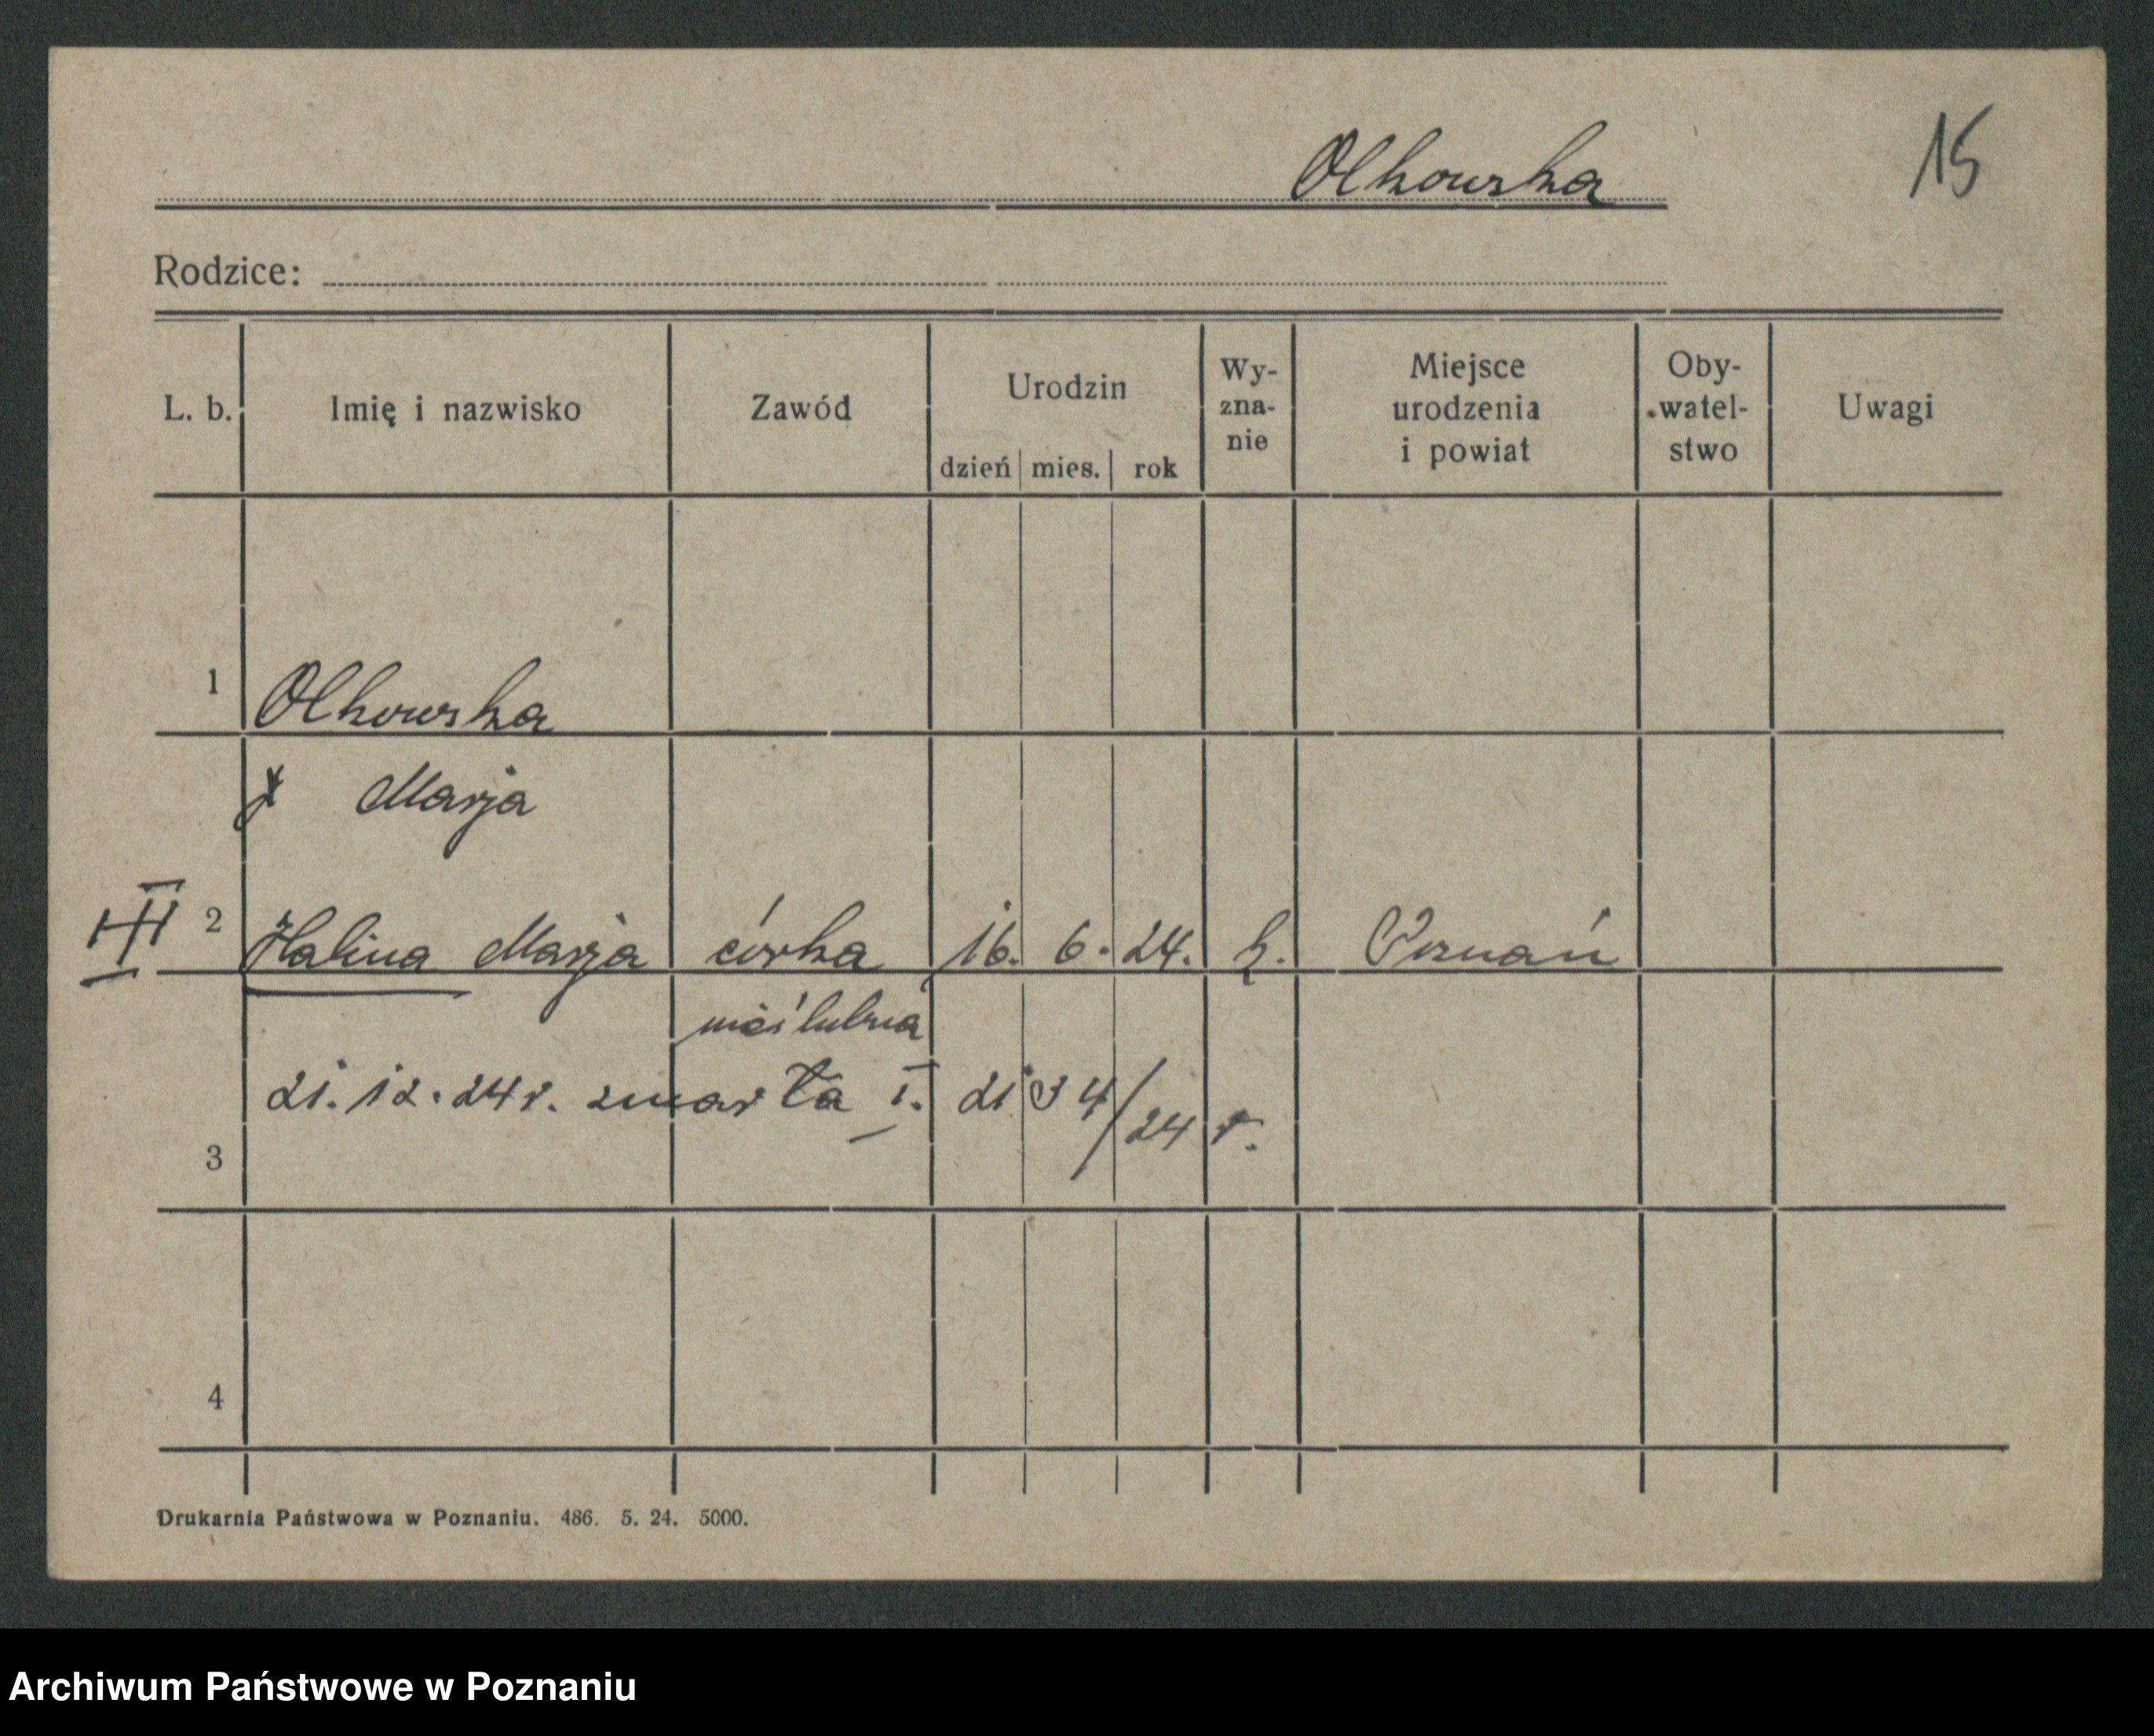 Olkowska
15
Rodzice:
L. b.
Imię i nazwisko
Zawód
Urodzin
dzień mies. rok
Wy-
zna-
nie
Miejsce
urodzenia
i powiat
Oby-
watel-
stwo
Uwagi
1 Olkowska
Marja
2 Halina Marja córka 16. 6. 24. k. Poznań
nieślubna
21. 12. 24 r. zmarła I. 2134/24 r.
3
4
Drukarnia Państwowa w Poznaniu. 486. 5. 24. 5000.
Archiwum Państwowe w Poznaniu